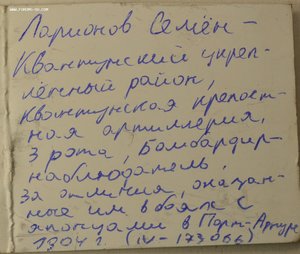 Ларионов Семён -
Квантунский укреп-
лённый район,
Квантунская крепост-
ная артиллерия,
3 рота, Бомбардир-
наблюдатель,
за отличия, оказан-
ные им в боях с
японцами в Порт-Артуре
1904 г. (IV - 173066)